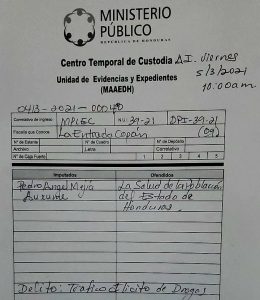 MINISTERIO
PÚBLICO
REPUBLICA DE HONDURAS
Centro Temporal de Custodia A.I. viernes
Unidad de Evidencias y Expedientes 5/3/2021
(MAAEDH) 10:00am
0413-2021-000
Correlativo de ingreso MPLEC NUI 39-21 DPI-39-21
Fiscalía que Conoce La Entrada Copán (09)
N° de Estante N° de Cuadro N° de Depósito
Archivo Letra Correlativo
N° de Caja Fuerte 1 2 3 4 5
Imputados Ofendidos
Pedro Angel Mejía La Salud de la Población
del Estado de
Honduras.
Delito: Tráfico Ilícito de Drogas